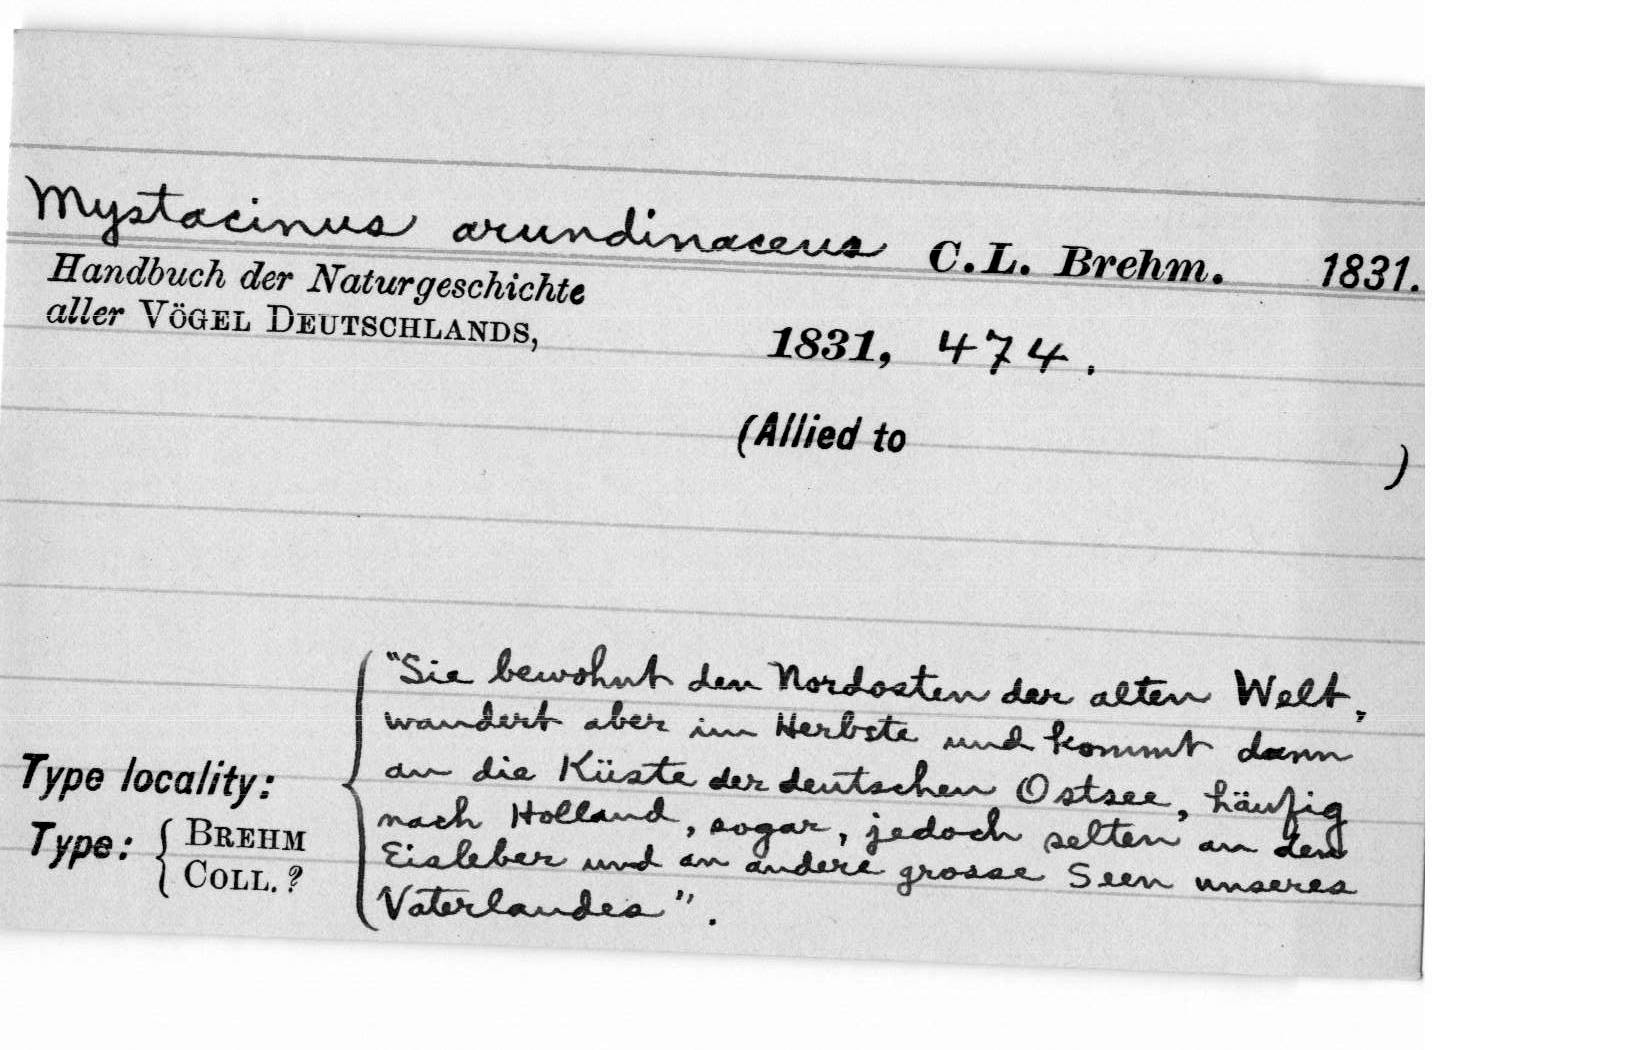 Mystacinus arundinaceus C.L. Brehm. 1831.
Handbuch der Naturgeschichte
aller VÖGEL DEUTSCHLANDS,
1831, 474.
(Allied to )
"Sie bewohnt den Nordosten der alten Welt,
wandert aber im Herbste und kommt dann
an die Küste der deutschen Ostsee, häufig
nach Holland, sogar, jedoch selten an den
Eisleber und an andere grosse Seen unseres
Vaterlandes".
Type locality:
Type: BREHM
COLL. ?